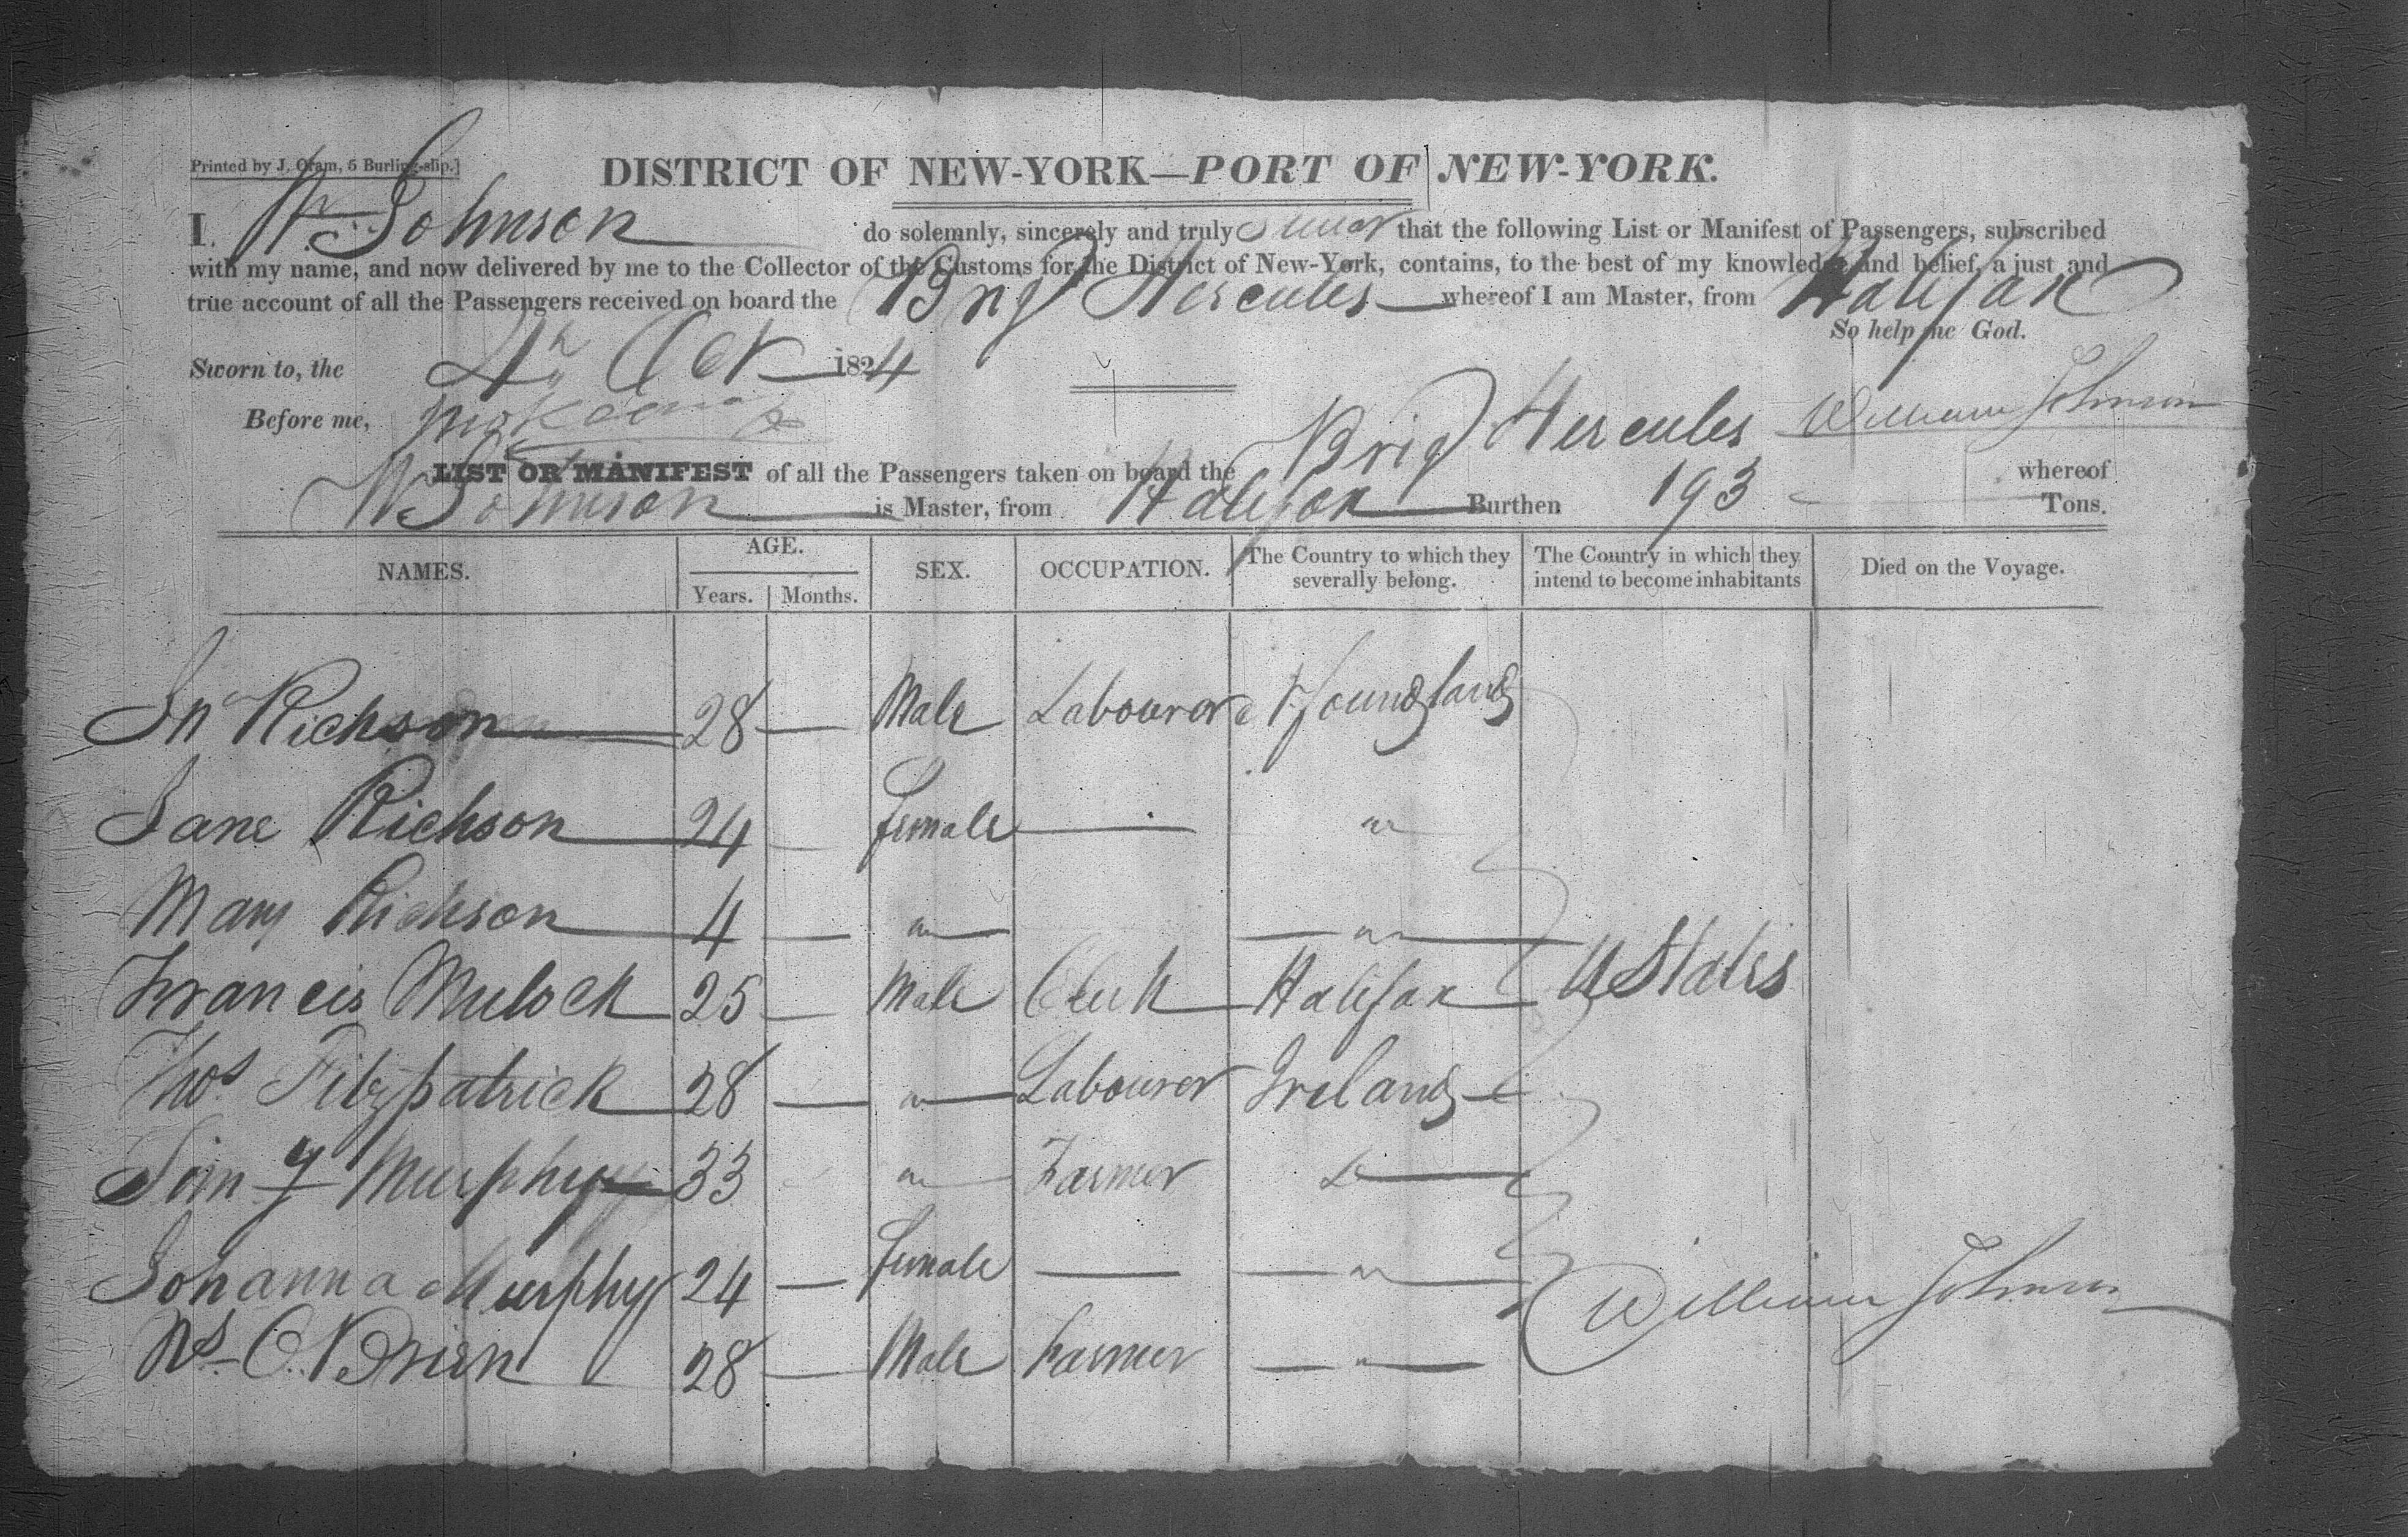 Printed by J. Oram, 5 Burling-slip.]
DISTRICT OF NEW-YORK—PORT OF NEW-YORK.
I. Wm Johnson do solemnly, sincerely and truly swear that the following List or Manifest of Passengers, subscribed
with my name, and now delivered by me to the Collector of the Customs for the District of New-York, contains, to the best of my knowledge and belief, a just and
true account of all the Passengers received on board the Brig Hercules whereof I am Master, from Halifax
So help me God.
Sworn to, the 4th Oct 1824
Before me,
William Johnson
LIST OR MANIFEST of all the Passengers taken on board the Brig Hercules whereof
W Johnson is Master, from Halifax Burthen 193 Tons.
NAMES. AGE. SEX. OCCUPATION. The Country to which they severally belong. The Country in which they intend to become inhabitants Died on the Voyage.
Years. Months.
Jn Richson 28 — Male Labourer Nfoundland
Jane Richson 24 — female — "
Mary Richson 4 — " — " —
Francis Mulock 25 — Male Clerk Halifax U States
Thos Fitzpatrick 28 — " Labourer Ireland
Tim y Murphy 33 " Farmer
Johanna Murphy 24 — female — — " —
Ws O. Brien 28 — Male Farmer — " —
William Johnson